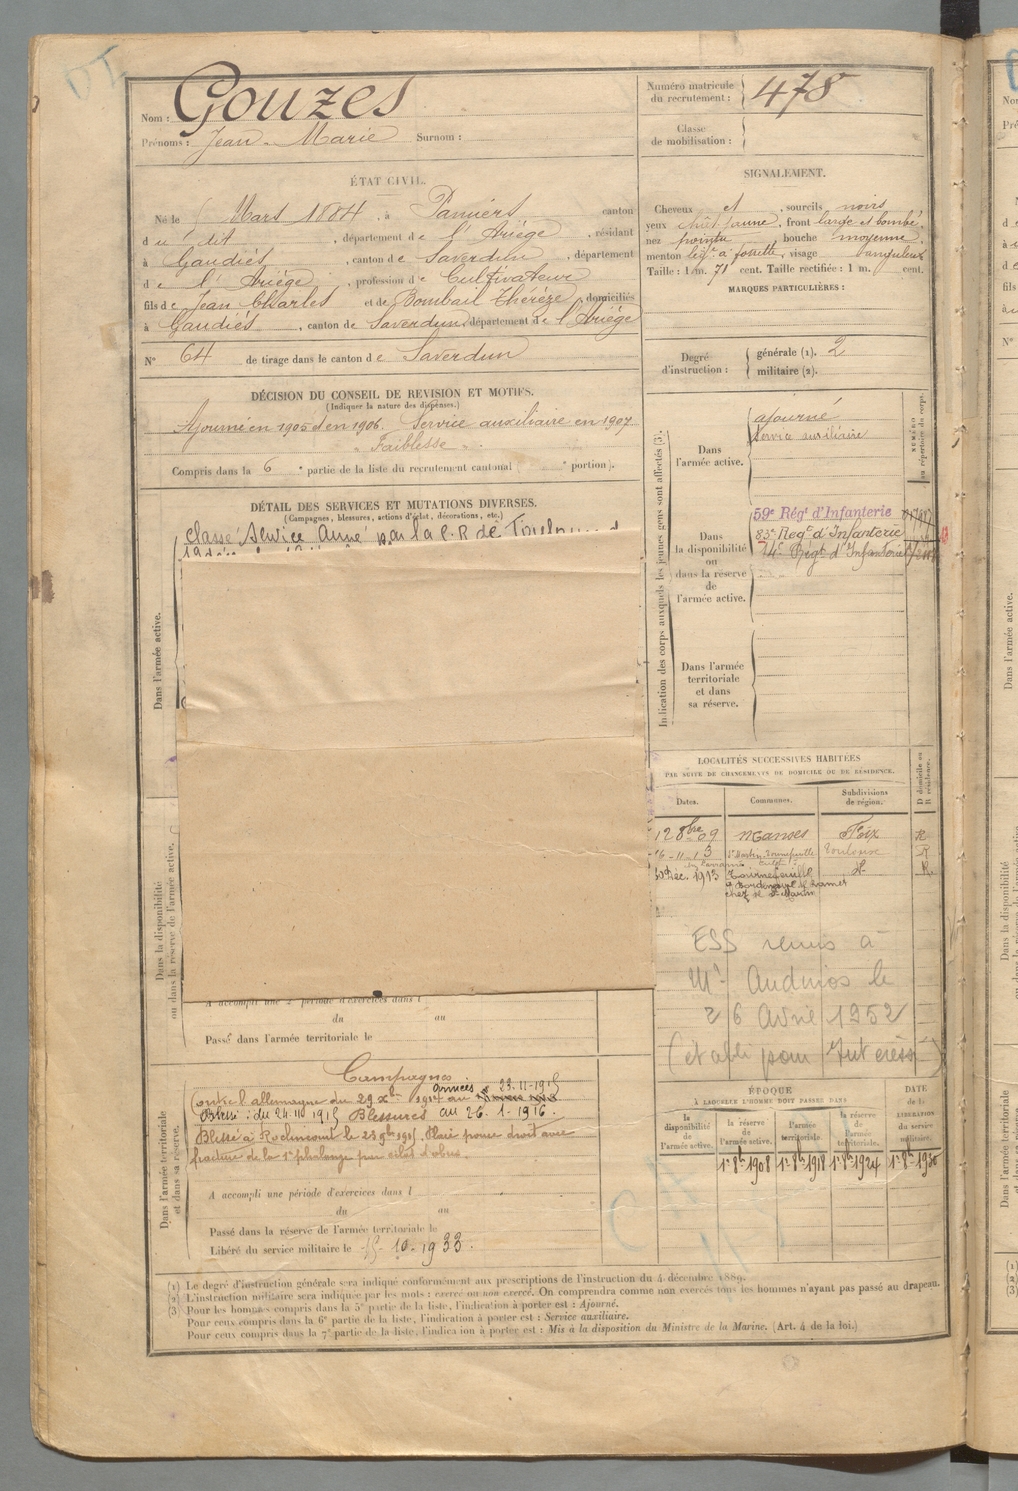 Nom : Gouzes
Prénoms : Jean-Marie Surnom :
Numéro matricule du recrutement : 478
Classe de mobilisation :
ÉTAT CIVIL.
Né le Mars 1884, à Pamiers canton
du dit, département de l'Ariège, résidant
à Gaudiès, canton de Saverdun, département
de l'Ariège, profession de Cultivateur
fils de Jean Charles et de Bombail Thérèze, domiciliés
à Gaudiès, canton de Saverdun, département de l'Ariège
N° 64 de tirage dans le canton de Saverdun
SIGNALEMENT.
Cheveux et, sourcils noirs
yeux chât. jaune, front large et bombé
nez pointu, bouche moyenne,
menton lég. à fossette, visage sanguleux
Taille : 1 m. 71 cent. Taille rectifiée : 1 m. cent.
MARQUES PARTICULIÈRES :
Degré d'instruction : générale (1). 2
militaire (2).
DÉCISION DU CONSEIL DE REVISION ET MOTIFS.
(Indiquer la nature des dispenses.)
Ajourné en 1905 et en 1906. Service auxiliaire en 1907
Faiblesse
Compris dans la 6e partie de la liste du recrutement cantonal ( e portion).
DÉTAIL DES SERVICES ET MUTATIONS DIVERSES.
(Campagnes, blessures, actions d'éclat, décorations, etc.)
Classé Service Armé par la C.R de Toulouse
Dans l'armée active.
Dans la disponibilité ou dans la réserve de l'armée active.
A accompli une 2e période d'exercices dans l
du au
Passé dans l'armée territoriale le
Dans l'armée territoriale et dans sa réserve.
Campagnes
Contre l'allemagne du 29 Xbre 1914 au 23-11-1915
armées
Blessé : du 24.11 1915 Blessures au 26.1.1916.
Blessé à Roclincourt le 23 9bre 1915. Plaie pouce droit avec
fracture de la 1e phalange par éclat d'obus.
A accompli une période d'exercices dans l
du au
Passé dans la réserve de l'armée territoriale le
Libéré du service militaire le 15-10-1933.
Indication des corps auxquels les jeunes gens sont affectés (3).
NUMÉRO au répertoire du corps.
Dans l'armée active.
ajourné
Service auxiliaire
Dans la disponibilité ou dans la réserve de l'armée active.
59e Régt d'Infanterie
83e Regt d'Infanterie
14e Régt d'Infanterie
Dans l'armée territoriale et dans sa réserve.
LOCALITÉS SUCCESSIVES HABITÉES
PAR SUITE DE CHANGEMENTS DE DOMICILE OU DE RÉSIDENCE.
Dates. Communes. Subdivisions de région. D domicile ou R résidence.
12 8bre 09 Manses Foix R
16-11-13 St Martin Tournefeuille Toulouse R
30 Déc. 1913 Tournefeuille
chez M. St Martin
ESS remis à
Mr Audrios le
26 Avril 1952
(établi pour Intéressé)
ÉPOQUE
À LAQUELLE L'HOMME DOIT PASSER DANS
DATE de la LIBÉRATION du service militaire.
la disponibilité de l'armée active. la réserve de l'armée active. l'armée territoriale. la réserve de l'armée territoriale.
1er 8bre 1908 1er 8bre 1918 1er 8bre 1924 1er 8bre 1930
(1) Le degré d'instruction générale sera indiqué conformément aux prescriptions de l'instruction du 4 décembre 1889.
(2) L'instruction militaire sera indiquée par les mots : exercé ou non exercé. On comprendra comme non exercés tous les hommes n'ayant pas passé au drapeau.
(3) Pour les hommes compris dans la 5e partie de la liste, l'indication à porter est : Ajourné.
Pour ceux compris dans la 6e partie de la liste, l'indication à porter est : Service auxiliaire.
Pour ceux compris dans la 7e partie de la liste, l'indication à porter est : Mis à la disposition du Ministre de la Marine. (Art. 4 de la loi.)